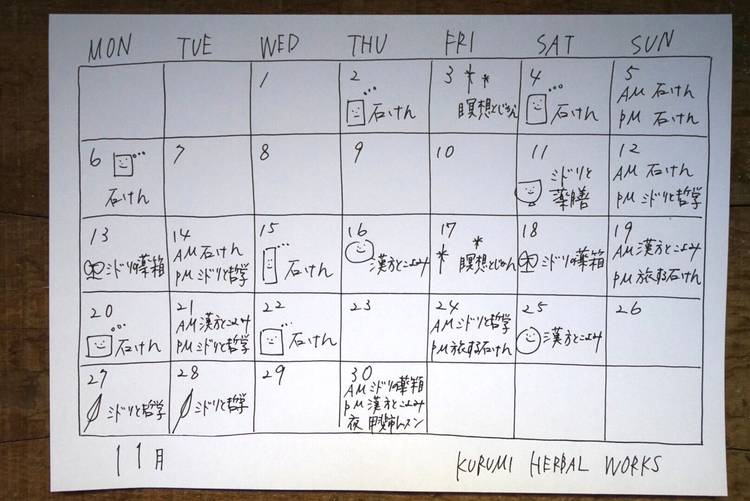 MON TUE WED THU FRI SAT SUN
1
2
石けん
3
瞑想とじかん
4
石けん
5
AM 石けん
PM 石けん
6
石けん
7
8
9
10
11
ミドリと
薬膳
12
AM 石けん
PM ミドリと哲学
13
ミドリの薬箱
14
AM 石けん
PM ミドリと哲学
15
石けん
16
漢方とこよみ
17
瞑想とじかん
18
ミドリの薬箱
19
AM 漢方とこよみ
PM 旅する石けん
20
石けん
21
AM 漢方とこよみ
PM ミドリと哲学
22
石けん
23
24
AM ミドリと哲学
PM 旅する石けん
25
漢方とこよみ
26
27
ミドリと哲学
28
ミドリと哲学
29
30
AM ミドリの薬箱
PM 漢方とこよみ
夜
11月
KURUMI HERBAL WORKS